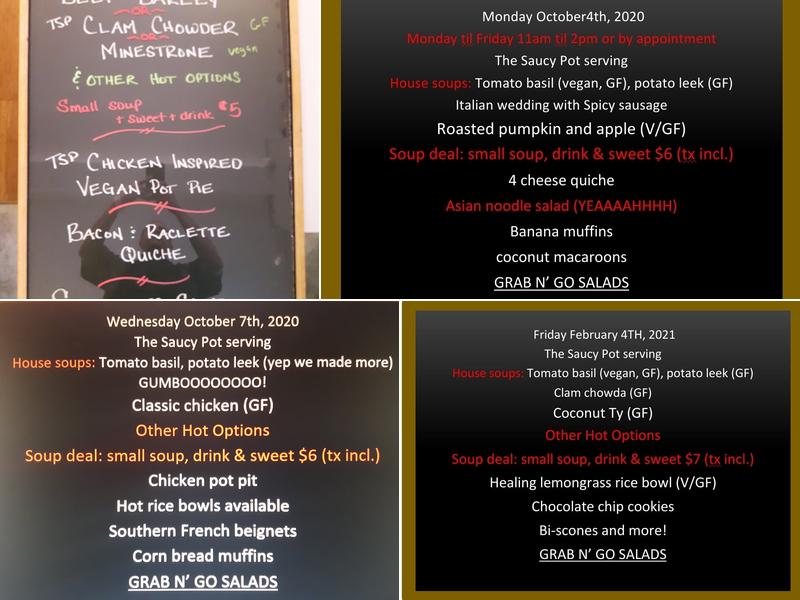 BEEF BARLEY
~OR~
TSP CLAM CHOWDER GF
~OR~
MINESTRONE vegan
& OTHER HOT OPTIONS
Small soup
+ sweet + drink $5
TSP CHICKEN INSPIRED
VEGAN POT PIE
BACON & RACLETTE
QUICHE
Monday October4th, 2020
Monday til Friday 11am til 2pm or by appointment
The Saucy Pot serving
House soups: Tomato basil (vegan, GF), potato leek (GF)
Italian wedding with Spicy sausage
Roasted pumpkin and apple (V/GF)
Soup deal: small soup, drink & sweet $6 (tx incl.)
4 cheese quiche
Asian noodle salad (YEAAAAHHHH)
Banana muffins
coconut macaroons
GRAB N’ GO SALADS
Wednesday October 7th, 2020
The Saucy Pot serving
House soups: Tomato basil, potato leek (yep we made more)
GUMBOOOOOOOO!
Classic chicken (GF)
Other Hot Options
Soup deal: small soup, drink & sweet $6 (tx incl.)
Chicken pot pit
Hot rice bowls available
Southern French beignets
Corn bread muffins
GRAB N’ GO SALADS
Friday February 4TH, 2021
The Saucy Pot serving
House soups: Tomato basil (vegan, GF), potato leek (GF)
Clam chowda (GF)
Coconut Ty (GF)
Other Hot Options
Soup deal: small soup, drink & sweet $7 (tx incl.)
Healing lemongrass rice bowl (V/GF)
Chocolate chip cookies
Bi-scones and more!
GRAB N’ GO SALADS